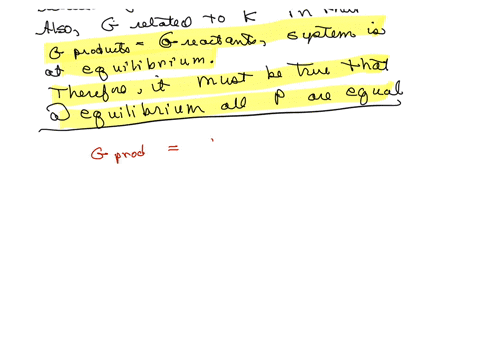 Also, G related to K in that
G products = G reactants, system is
at equilibrium.
Therefore, it must be true that
@ equilibrium all P are equal,
G prod =